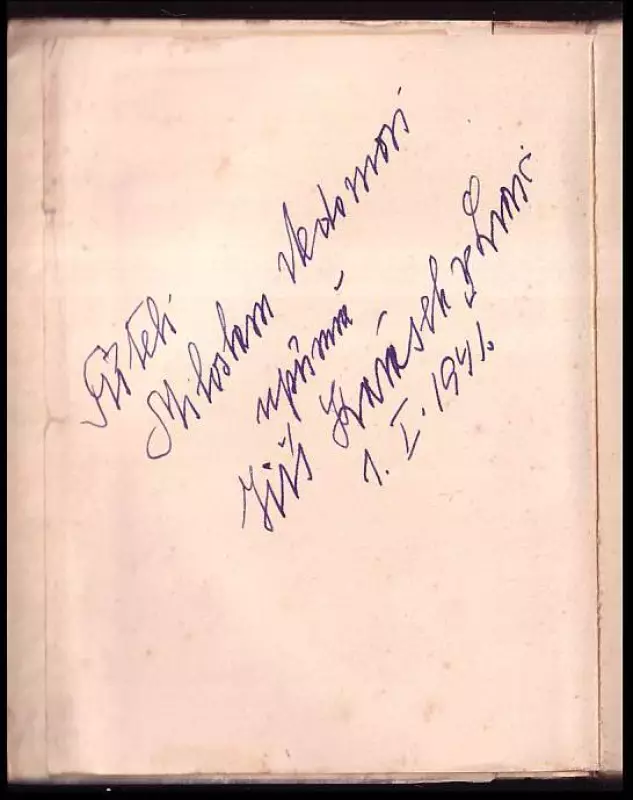 Příteli
Miloslavu
upřímně
Jiří Karásek ze Lvovic
1. I. 1941.